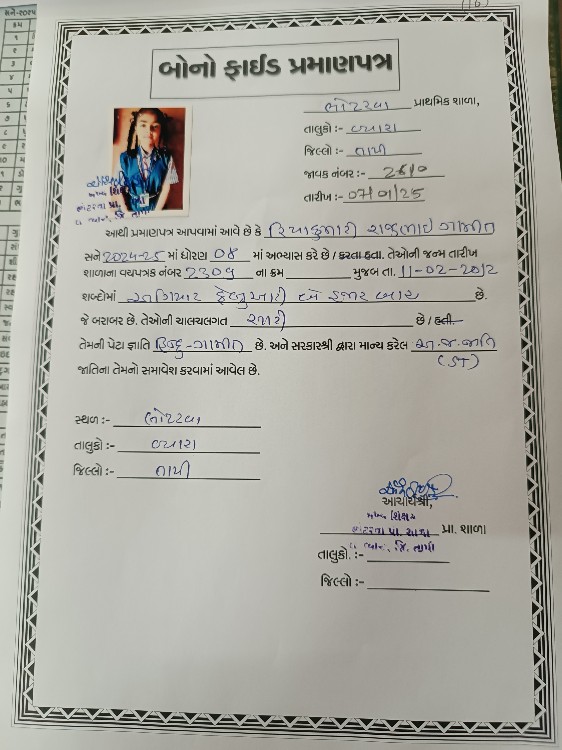 બોનો ફાઈડ પ્રમાણપત્ર
ભોરરવા પ્રાથમિક શાળા,
તાલુકો :- વ્યારા
જિલ્લો :- તાપી
જાવક નંબર :- 26/0
તારીખ :- 07/01/25
આથી પ્રમાણપત્ર આપવામાં આવે છે કે રિયાકુમારી રાજુભાઇ ગામીત
સને 2024-25 માં ધોરણ 08 માં અભ્યાસ કરે છે / કરતા હતા. તેઓની જન્મ તારીખ
શાળાના વયપત્રક નંબર 2309 ના ક્રમ મુજબ તા. 11-02-2012
શબ્દોમાં અગિયાર ફેબ્રુઆરી બે હજાર બાર છે.
જે બરાબર છે. તેઓની ચાલચલગત સારી છે / હતી.
તેમની પેટા જ્ઞાતિ હિન્દુ-ગામીત છે. અને સરકારશ્રી દ્વારા માન્ય કરેલ અ.જ.જાતિ
(ST)
જાતિના તેમનો સમાવેશ કરવામાં આવેલ છે.
સ્થળ :- ભોરરવા
તાલુકો :- વ્યારા
જિલ્લો :- તાપી
આચાર્યશ્રી,
મુખ્ય શિક્ષક
પ્રા. શાળા
તા. વ્યારા, જિ. તાપી
તાલુકો. :-
જિલ્લો :-